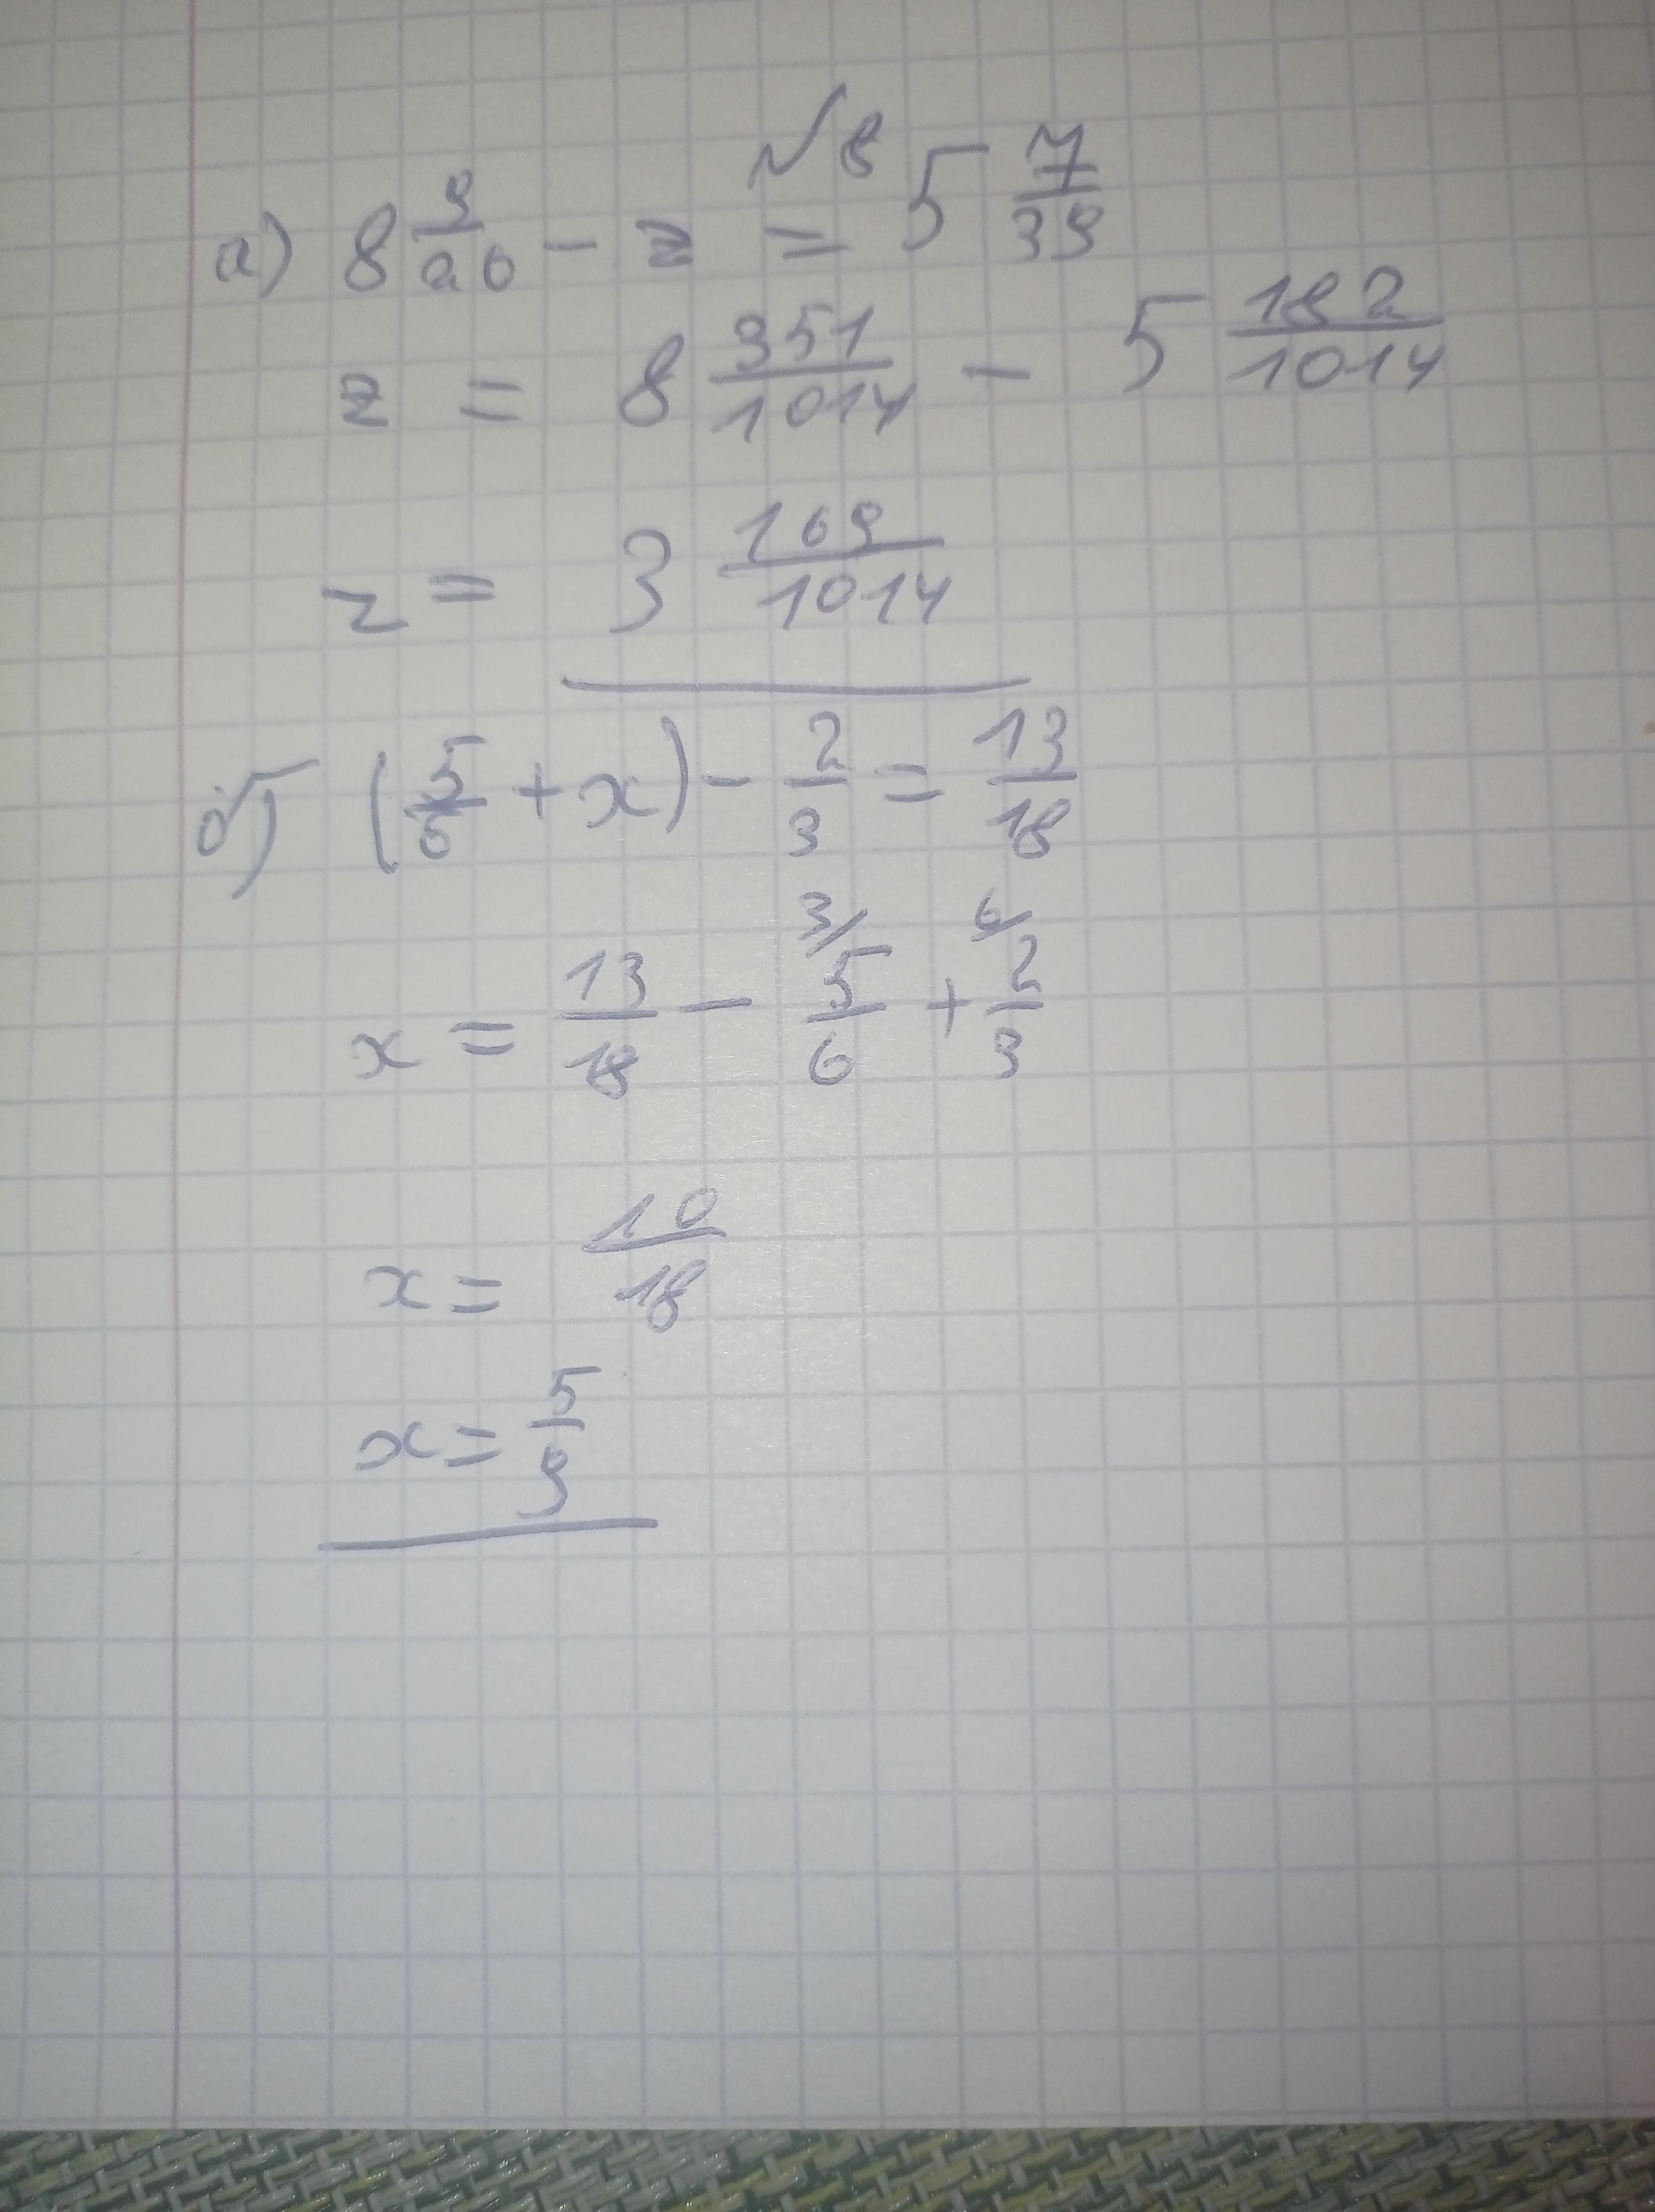 №8
а) 8 9/26 - z = 5 7/39
z = 8 351/1014 - 5 182/1014
z = 3 169/1014
б) (5/6 + x) - 2/3 = 13/18
x = 13/18 - 3/ 5/6 + 6/ 2/3
x = 10/18
x = 5/9